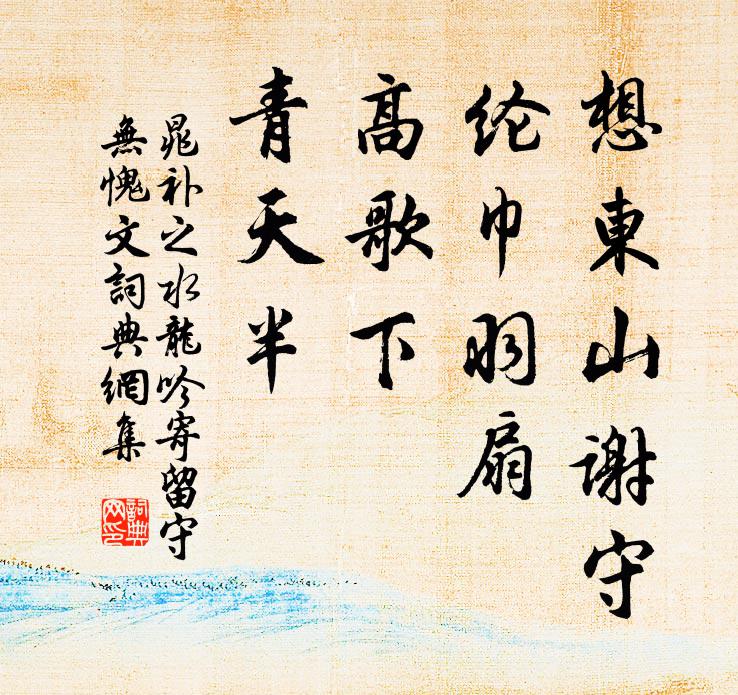 想東山謝守
纶巾羽扇
高歌下
青天半
晁补之水龍吟寄留守
無愧文詞典網集
詞典
网印